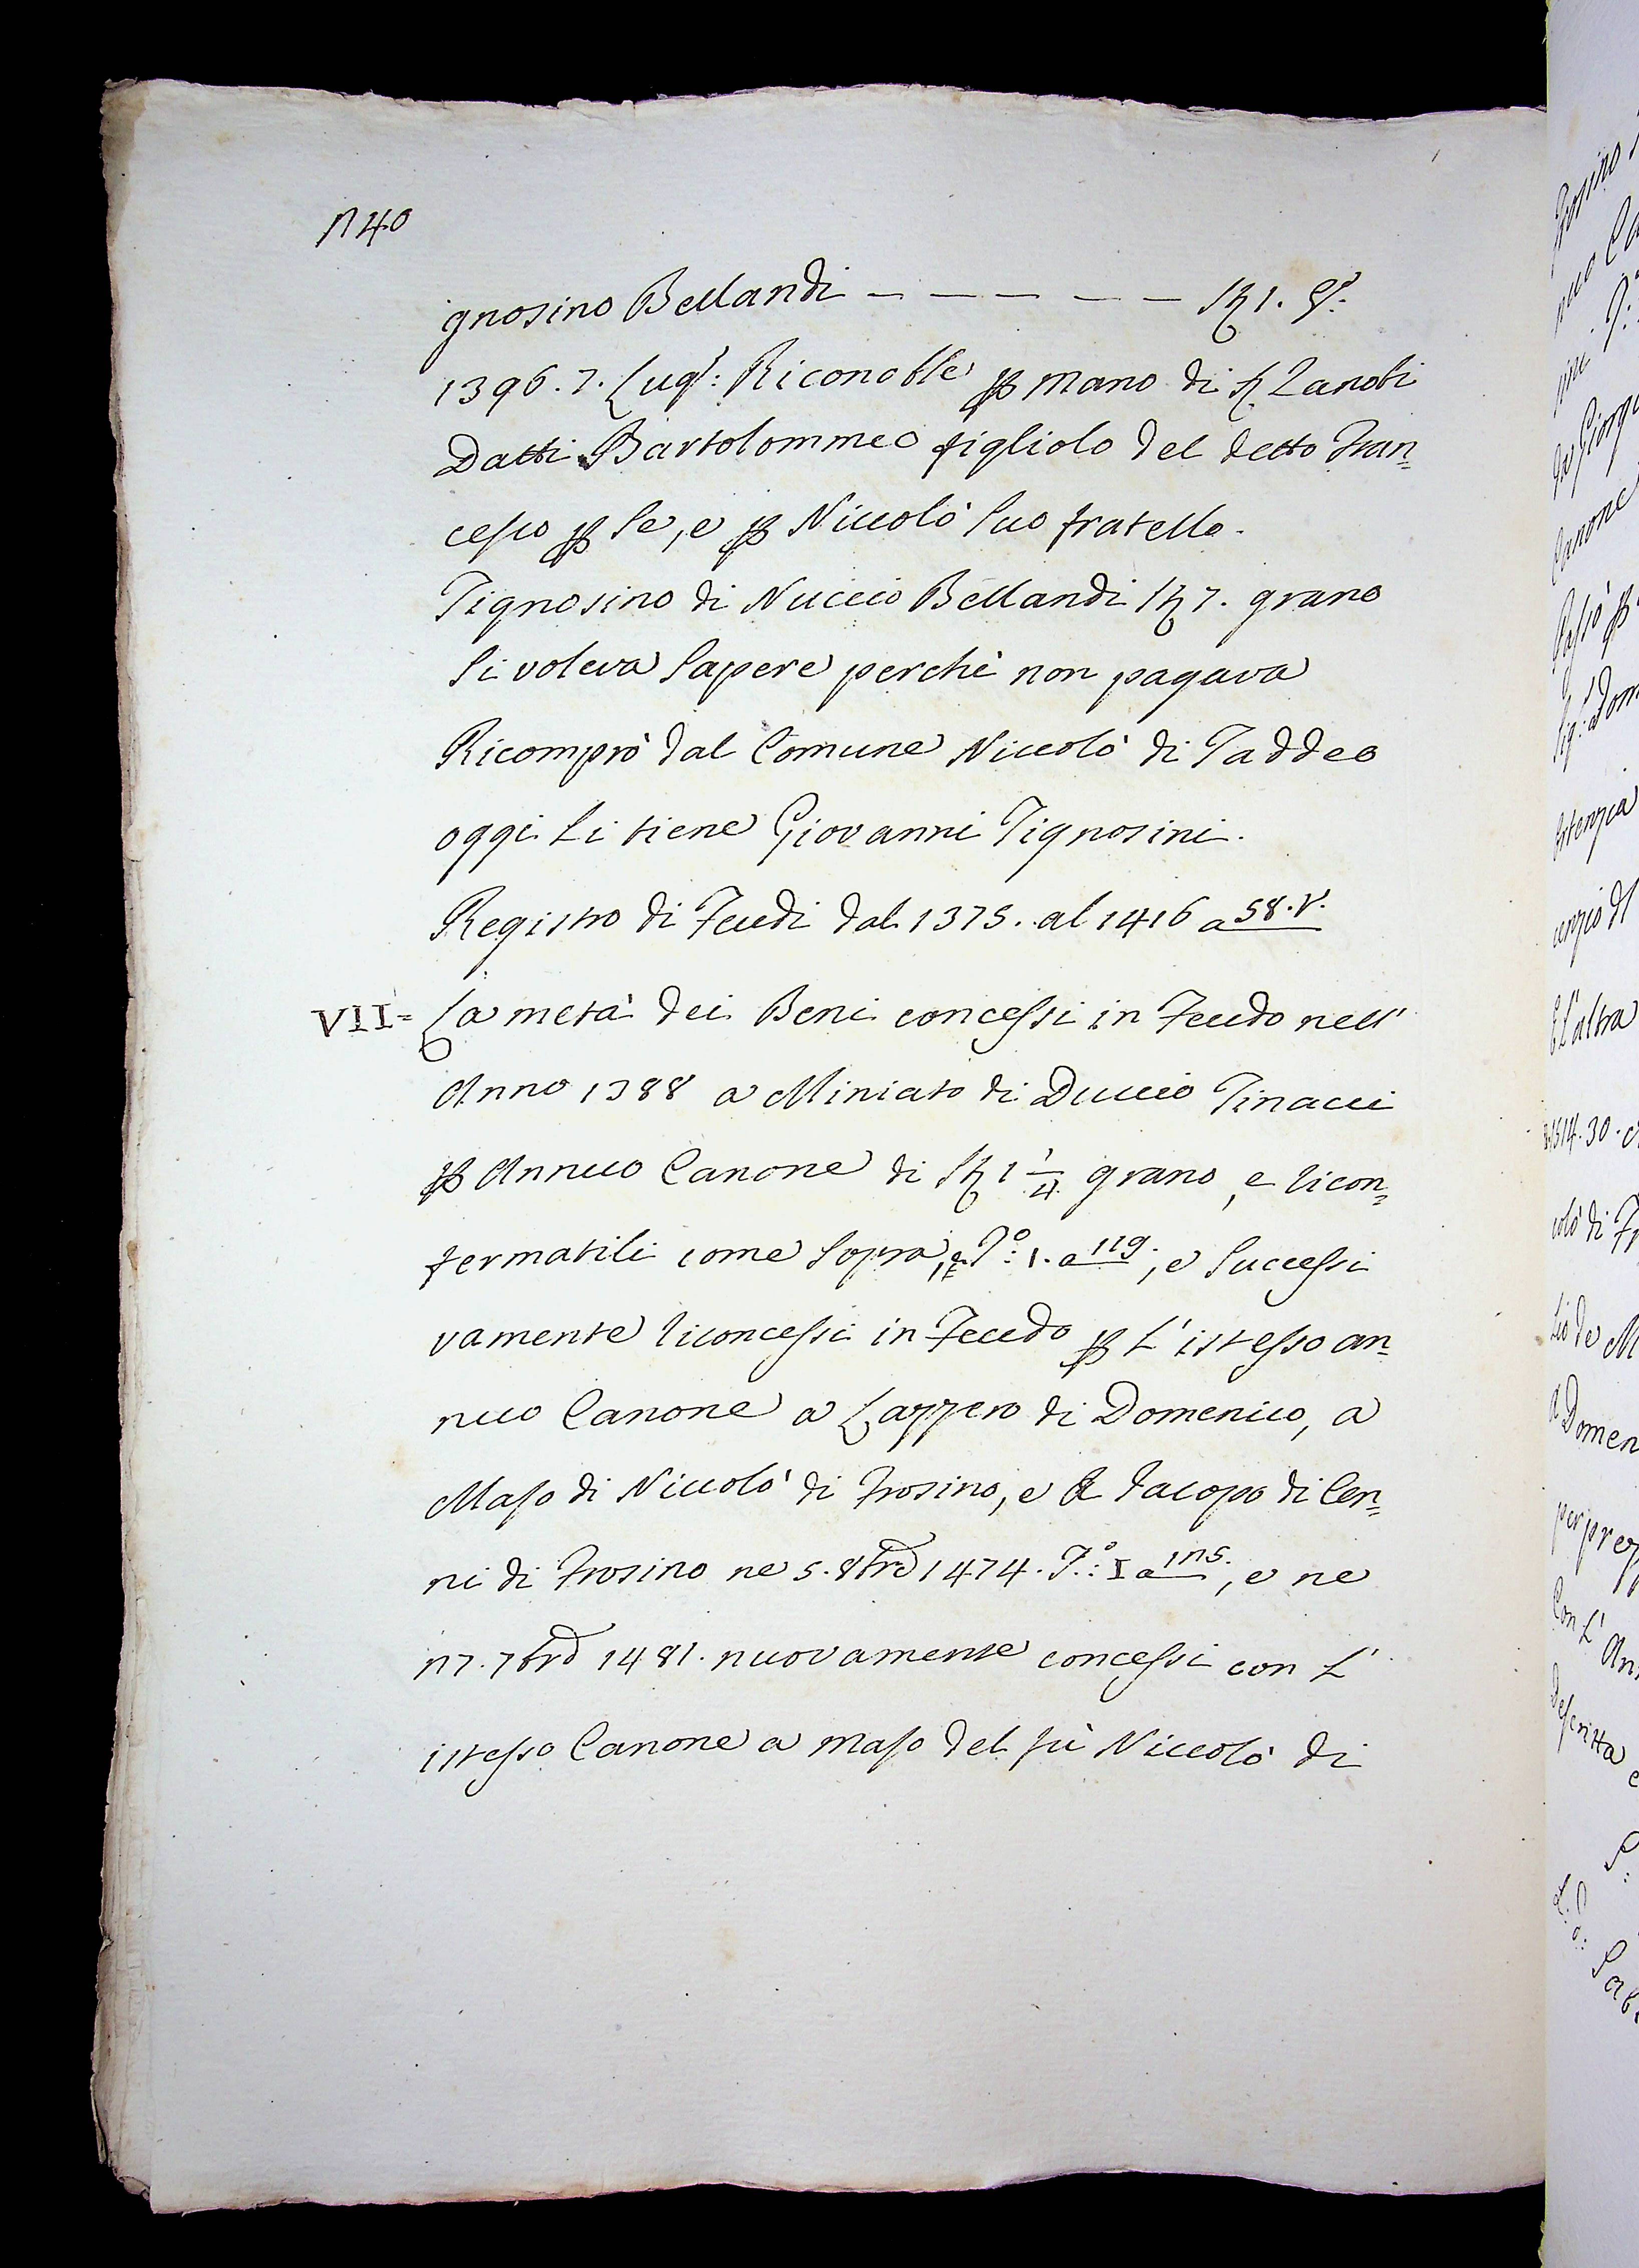 240
gnosino Bellandi — — — — — — St 1. G:
1396. 7. Lugl: Riconobbe p mano di S Zanobi
Datti Bartolommeo figliolo del detto Fran=
cesco p se, e p Niccolò suo fratello.
Tignosino di Nuccio Bellandi St 7. grano
si voleva sapere perchè non pagava
Ricomprò dal Comune Niccolò di Taddeo
oggi li tiene Giovanni Tignosini.
Registro di Feudi dal 1375. al 1416 a 58. v.
VII= La metà dei Beni concessi in Feudo nell'
Anno 1388 a Miniato di Duccio Tinacci
p Annuo Canone di St 1 1/4 grano, e ricon=
fermatili come sopra, T.º: 1. a 119., e successi
vamente riconcessi in Feudo p l'istesso an=
nuo Canone a Lazzero di Domenico, a
Maso di Niccolò di Frosino, e a Iacopo di Cen=
ni di Frosino ne 5. 8bre 1474. T.º: I a 125., e ne
27. 7bre 1481. nuovamente concessi con l'
istesso Canone a Maso del fù Niccolò di